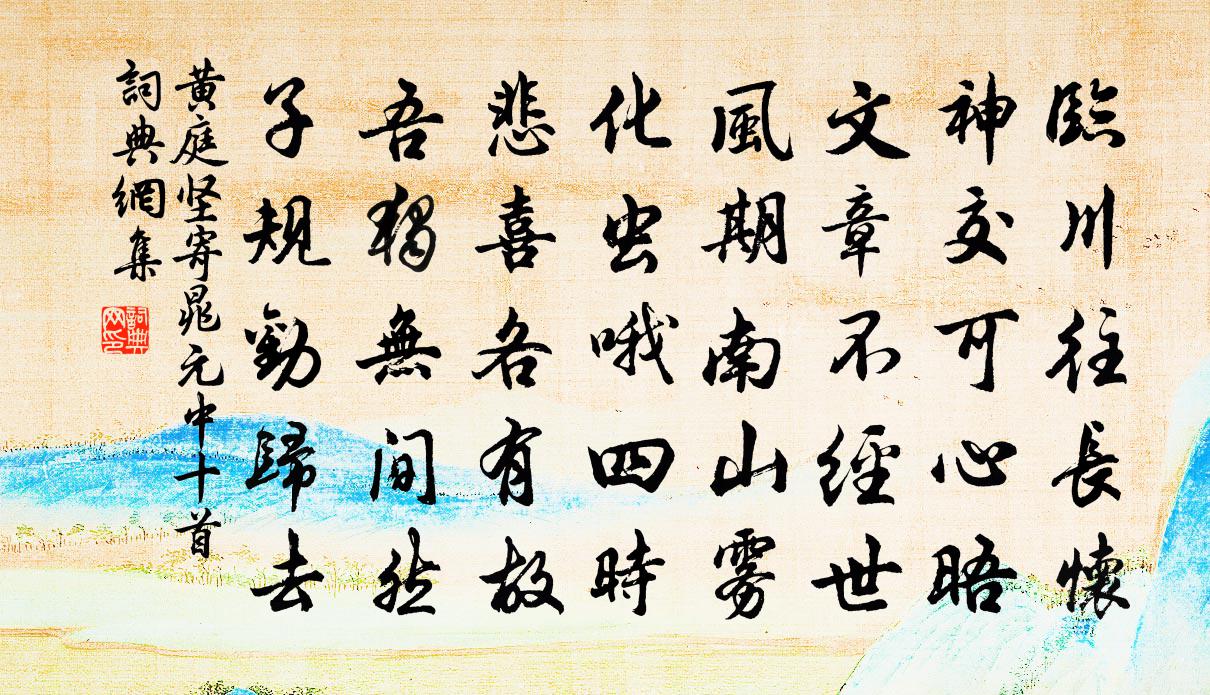 臨川往長懷
神交可心晤
文章不經世
風期南山雾
化虫哦四時
悲喜各有故
吾獨無間然
子規勸歸去
黄庭坚寄晁元中十首
詞典網集
詞典網印